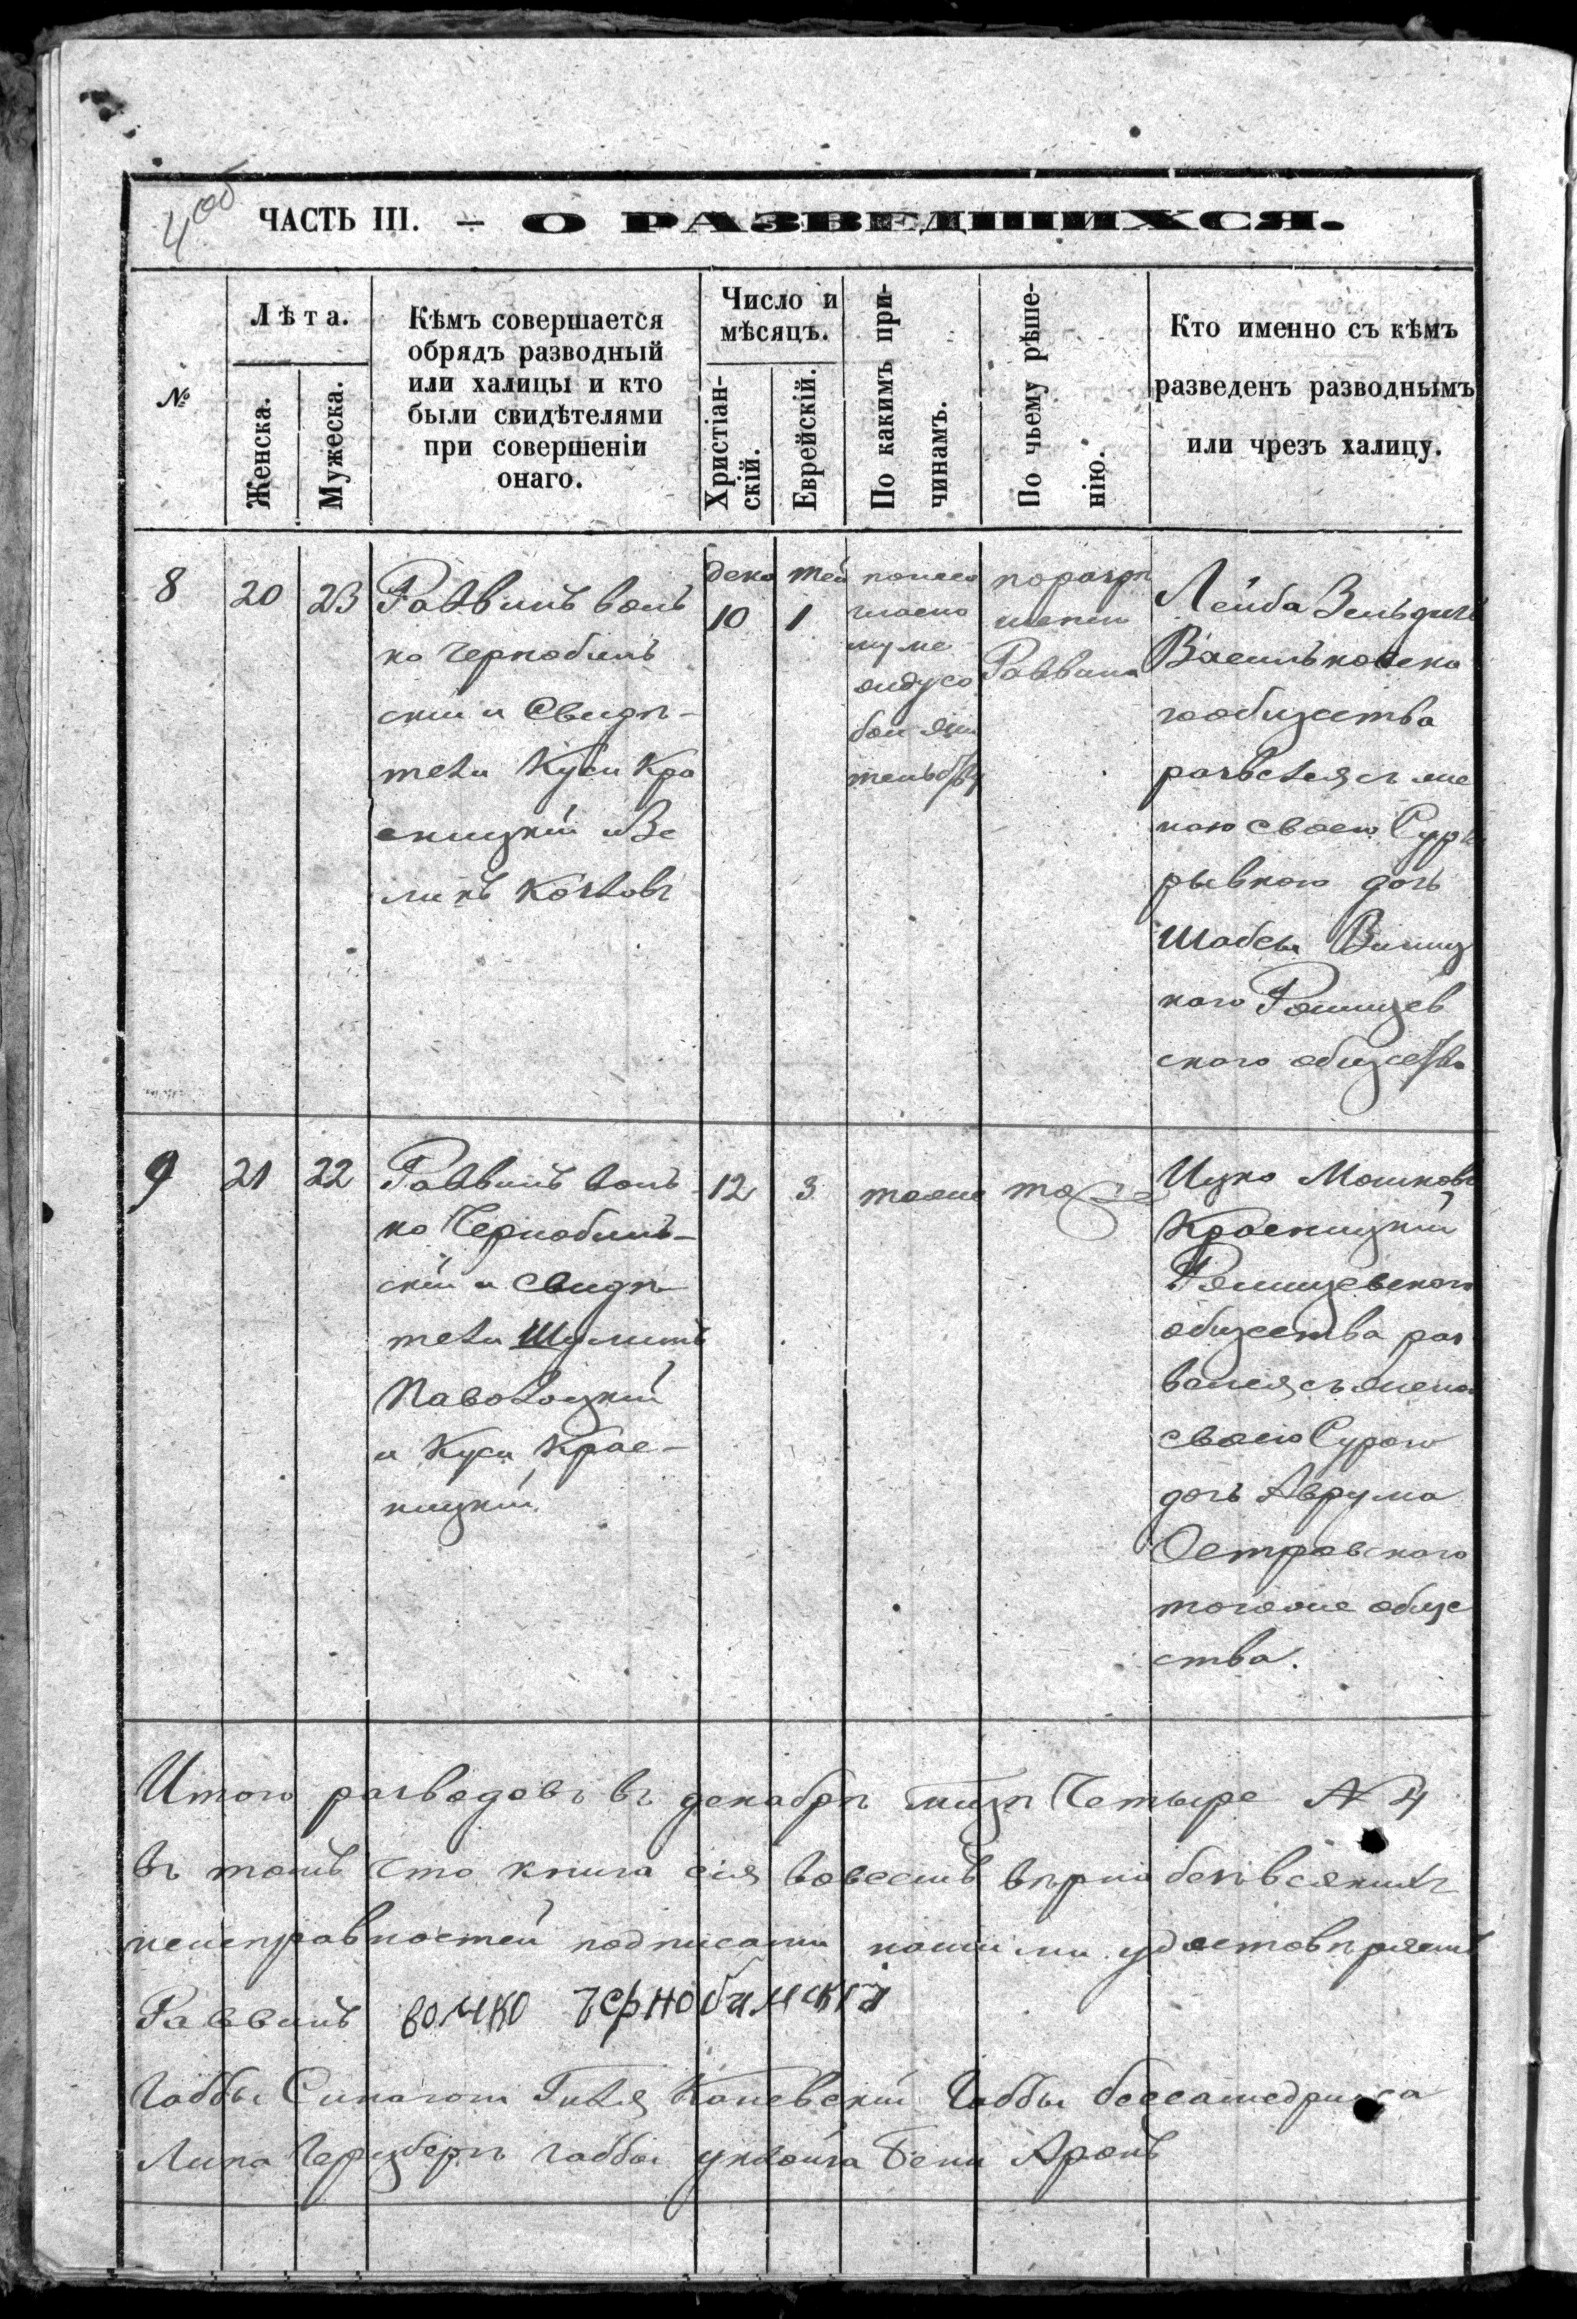 4 об
ЧАСТЬ III. — О РАЗВЕДШИХСЯ.
№
Лѣта.
Женска.
Мужеска.
Кѣмъ совершается
обрядъ разводный
или халицы и кто
были свидѣтелями
при совершеніи
онаго.
Число и
мѣсяцъ.
Христіан-
скій.
Еврейскій.
По какимъ при-
чинамъ.
По чьему рѣше-
нію.
Кто именно съ кѣмъ
разведенъ разводнымъ
или чрезъ халицу.
8
20
23
Раввинъ Воль
ко Чернобиль
скій и свидѣ-
тели Куси Кра
сницкій и Ве
ликъ Козловъ
дека
10
1
разрѣ
шенію
Раввина
Лейба
Васильковска
го общества
развелся съ же
ною своею Сура
рывкою дочь
Шабсы Винниц
кого Ромицев
ского общества
9
21
22
Раввинъ Воль-
ко Чернобиль-
скій и свидѣ
тели Шулимъ
Паволоцкій
и Куси Крас-
ницкій.
12
3
тоже
тоже
Ицко Мошковъ
Красницкій
Ромицевского
общества раз
велся съ женою
своею Сурою
дочь Аврума
Островского
тогоже обще
ства.
Итого разводовъ въ декабрѣ мцѣ Четыре № 4
въ томъ что книга сія вовсемъ вѣрна безъ всякихъ
неисправностей подписами нашими удостовѣряемъ
Раввинъ Волко Чернобилскій
Габбы Синагоги Гиля Каневскій Габбы бессамедриша
Липа Герцбергъ габбы Бени Аронъ